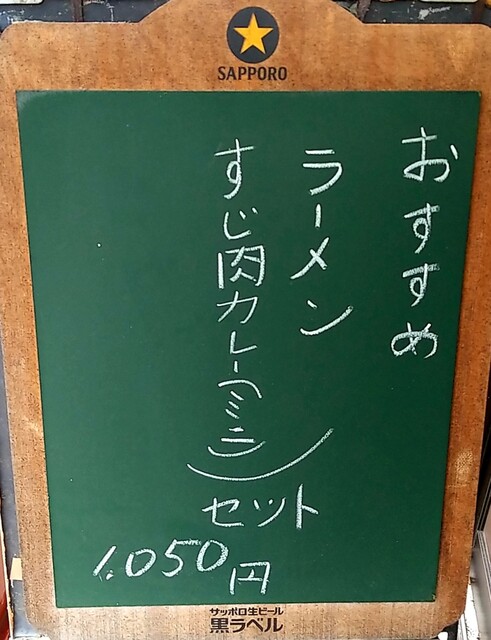 SAPPORO
おすすめ
ラーメン
すじ肉カレー(ミニ)
セット
1.050円
サッポロ生ビール
黒ラベル